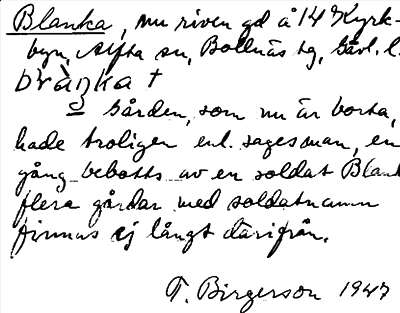 Blanka, nu riven gd å 14 Kyrk-
byn, Alfta sn, Bollnäs tg, Gävl. l.
† Gården, som nu är borta,
hade troligen enl. sagesman, en
gång bebotts av en soldat Blank
flera gårdar med soldatnamn
finnas ej långt därifrån.
T. Birgerson 1947